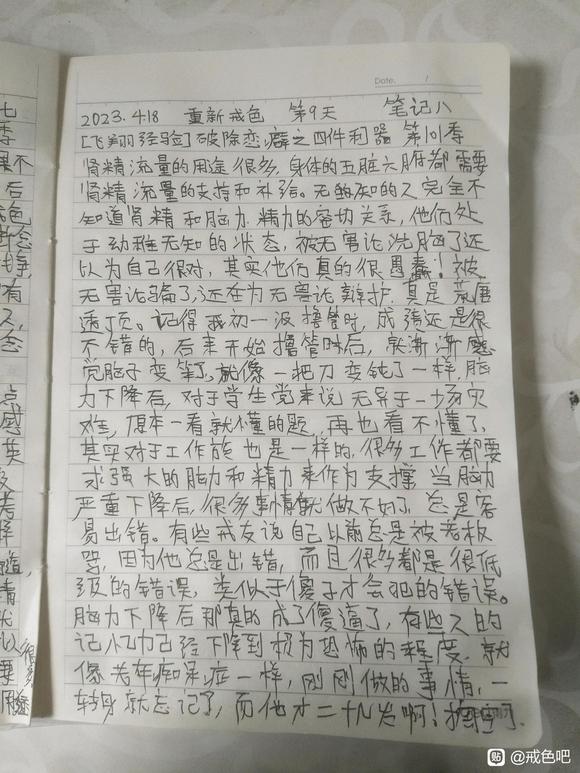 Date. /
2023.4.18 重新戒色 第9天 笔记八
[飞翔经验]破除恋癖之四件利器 第101季
肾精流量的用途很多,身体的五脏六腑都需要
肾精流量的支持和补给。无知的人完全不
知道肾精和脑力.精力的密切关系,他们处
于幼稚无知的状态,被无害论洗脑了还
以为自己很对,其实他们真的很愚蠢!被
无害论骗了,还在为无害论辩护,真是荒唐
透顶。记得我初一没撸管时,成绩还是很
不错的,后来开始撸管时后,就渐渐感
觉脑子变笨了,就像一把刀变钝了一样,脑
力下降后,对于学生党来说无异于一场灾
难,原本一看就懂的题,再也看不懂了,
其实对于工作族也是一样的,很多工作都要
求强大的脑力和精力来作为支撑,当脑力
严重下降后,很多事情就做不好了,总是容
易出错。有些戒友说自己以前总是被老板
骂,因为他总是出错,而且很多都是很低
级的错误,类似于傻子才会犯的错误。
脑力下降后那真的成了傻逼了,有些人的
记忆力已经下降到极为恐怖的程度,就
像老年痴呆症一样,刚刚做的事情,一
转身就忘记了,而他才二十几岁啊!掏空了.
七
季
果不
后
色
念
争
有
人,
念
点
感
英
者
样
道,
精
以
要 很多
用途
贴 @戒色吧